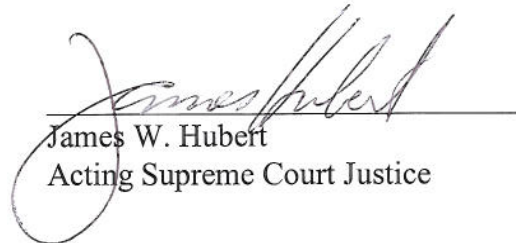 James Hubert
James W. Hubert
Acting Supreme Court Justice